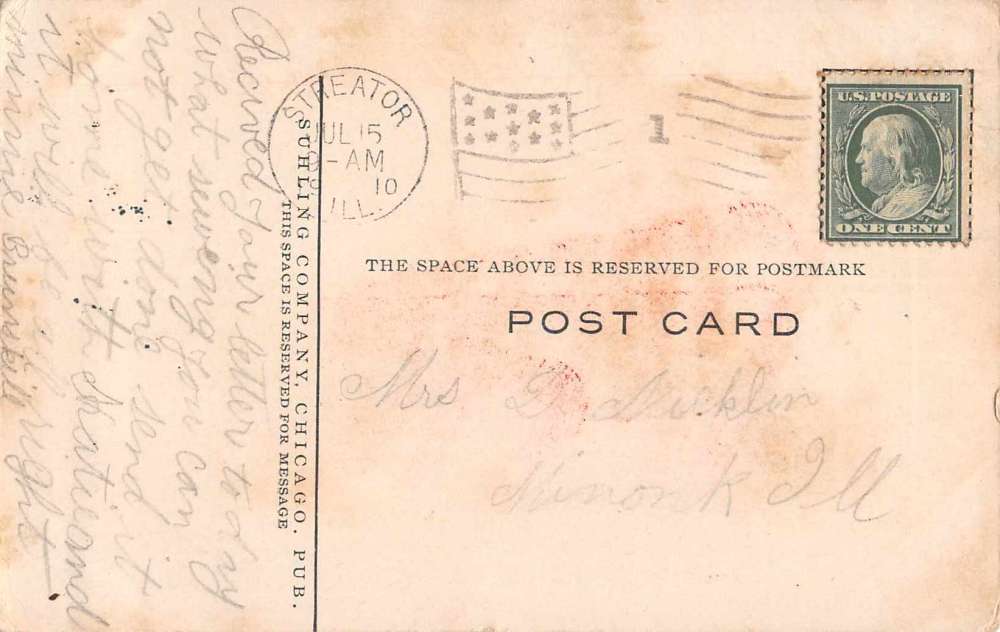 Recived your letter to day
what sewing you can
not get along send it
home with that and
it will be all right
minnie
SUHLING COMPANY, CHICAGO, PUB.
THIS SPACE IS RESERVED FOR MESSAGE
STREATOR
JUL 15
-AM
10
ILL.
1
U.S. POSTAGE
ONE CENT
THE SPACE ABOVE IS RESERVED FOR POSTMARK
POST CARD
Mrs D.
Minonk Ill